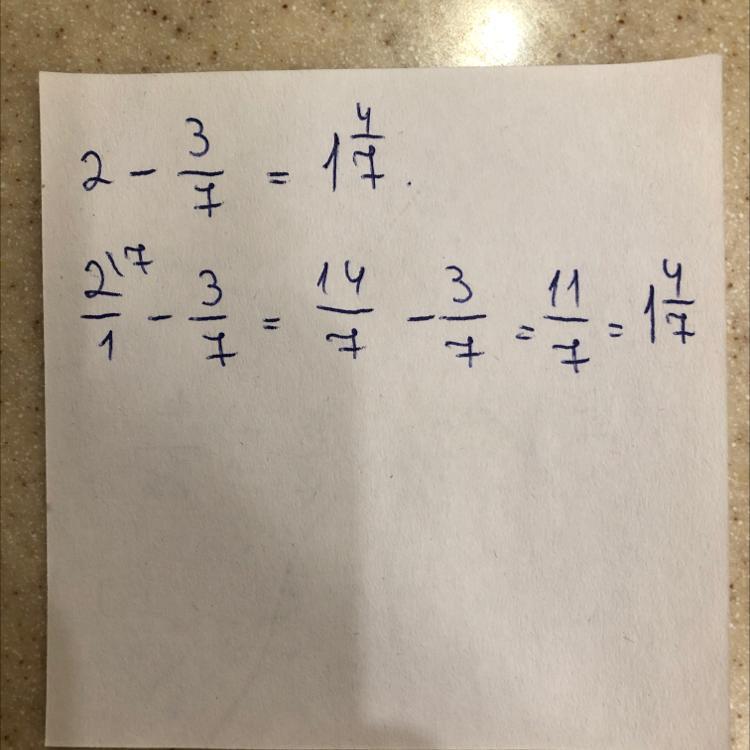 2 - 3/7 = 1 4/7.
2\7/1 - 3/7 = 14/7 - 3/7 = 11/7 = 1 4/7